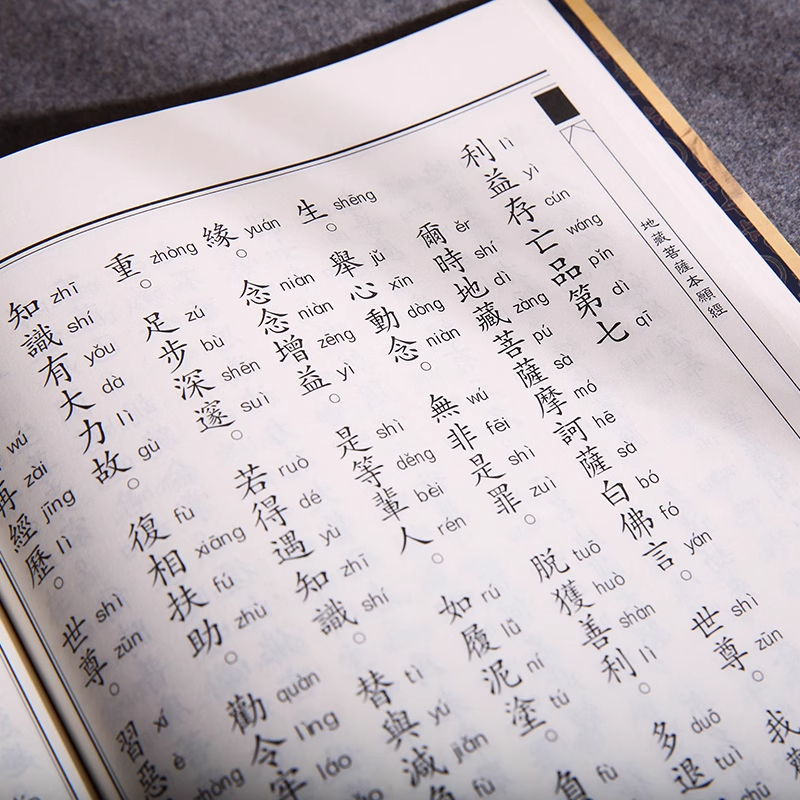 地藏菩薩本願經
利益存亡品第七
lì yì cún wáng pǐn dì qī
爾時地藏菩薩摩訶薩白佛言。世尊。我
ěr shí dì zàng pú sà mó hē sà bó fó yán shì zūn
生。舉心動念。無非是罪。脫獲善利。多退
shēng jǔ xīn dòng niàn wú fēi shì zuì tuō huò shàn lì duō tuì
緣。念念增益。是等輩人。如履泥塗。負
yuán niàn niàn zēng yì shì děng bèi rén rú lǚ ní tú fù
重。足步深邃。若得遇知識。替與減負
zhòng zú bù shēn suì ruò dé yù zhī shí tì yú jiǎn fù
知識有大力故。復相扶助。勸令牢
zhī shí yǒu dà lì gù fù xiāng fú zhù quàn lìng láo
再經歷。世尊。習惡
wú zài jīng lì shì zūn xí è zhòng